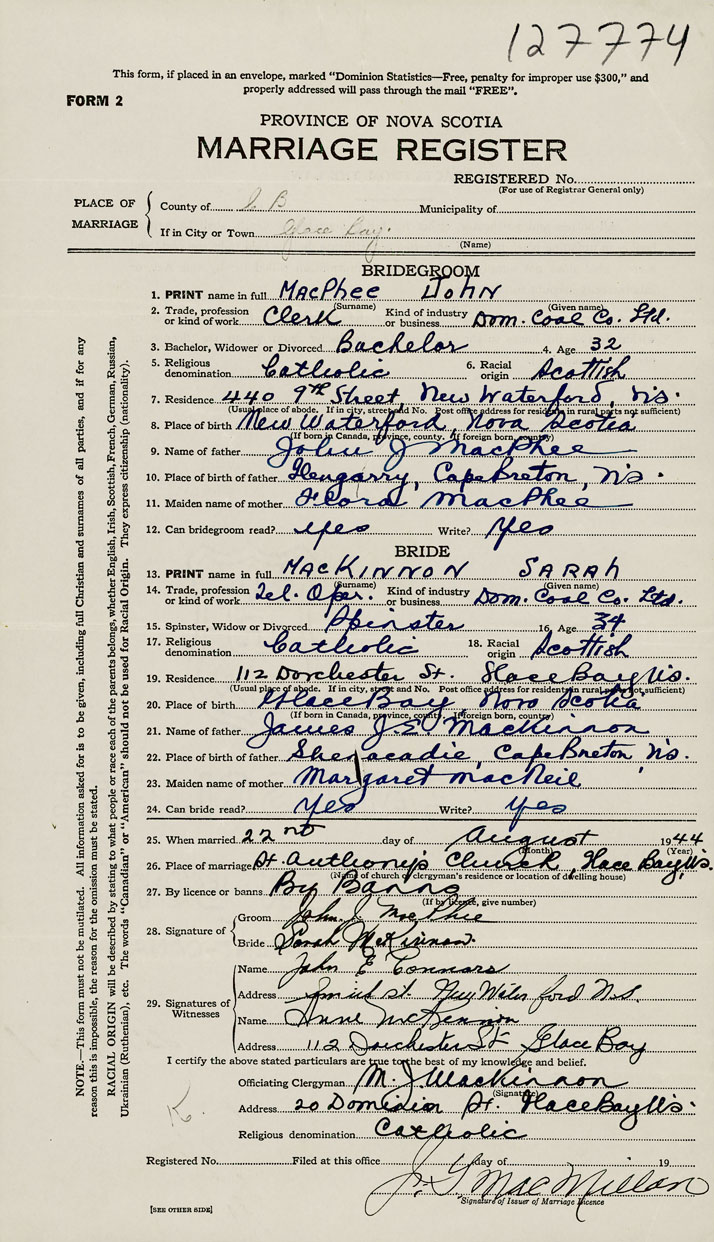 127774
This form, if placed in an envelope, marked “Dominion Statistics—Free, penalty for improper use $300,” and
properly addressed will pass through the mail “FREE”.
FORM 2
PROVINCE OF NOVA SCOTIA
MARRIAGE REGISTER
REGISTERED No.
(For use of Registrar General only)
PLACE OF MARRIAGE
County of C. B Municipality of
If in City or Town Glace Bay.
(Name)
BRIDEGROOM
1. PRINT name in full MacPhee John
(Surname) (Given name)
2. Trade, profession or kind of work Clerk Kind of industry or business Dom. Coal Co. Ltd.
3. Bachelor, Widower or Divorced Bachelor 4. Age 32
5. Religious denomination Catholic 6. Racial origin Scottish
7. Residence 440 9th Street, New Waterford, N.S.
(Usual place of abode. If in city, street and No. Post office address for residents in rural parts not sufficient)
8. Place of birth New Waterford, Nova Scotia
(If born in Canada, province, county. If foreign born, country)
9. Name of father John J MacPhee
10. Place of birth of father Glengarry, Cape Breton, N.S.
11. Maiden name of mother Flora MacPhee
12. Can bridegroom read? yes Write? Yes
BRIDE
13. PRINT name in full MacKinnon Sarah
(Surname) (Given name)
14. Trade, profession or kind of work Tel. Oper. Kind of industry or business Dom. Coal Co. Ltd.
15. Spinster, Widow or Divorced Spinster 16. Age 34
17. Religious denomination Catholic 18. Racial origin Scottish
19. Residence 112 Dorchester St. Glace Bay N.S.
(Usual place of abode. If in city, street and No. Post office address for residents in rural parts not sufficient)
20. Place of birth Glace Bay, Nova Scotia
(If born in Canada, province, county. If foreign born, country)
21. Name of father James J. E. MacKinnon
22. Place of birth of father Shenacadie, Cape Breton, N.S.
23. Maiden name of mother Margaret MacNeil
24. Can bride read? Yes Write? Yes
25. When married 22nd day of August 1944
(Month) (Year)
26. Place of marriage St. Anthony's Church, Glace Bay, N.S.
(Name of church or clergyman's residence or location of dwelling house)
27. By licence or banns By Banns
(If by licence, give number)
28. Signature of
Groom John J. MacPhee
Bride Sarah McKinnon.
29. Signatures of Witnesses
Name John E Connors
Address St. New Waterford N.S.
Name Anne McKinnon
Address 112 Dorchester St Glace Bay
I certify the above stated particulars are true to the best of my knowledge and belief.
Officiating Clergyman M. J. MacKinnon
(Signature)
Address 20 Dominion St. Glace Bay N.S.
Religious denomination Catholic
Registered No. Filed at this office day of 19
J. G MacMillan
Signature of Issuer of Marriage Licence
[SEE OTHER SIDE]
K.
NOTE.—This form must not be mutilated. All information asked for is to be given, including full Christian and surnames of all parties, and if for any
reason this is impossible, the reason for the omission must be stated.
RACIAL ORIGIN will be described by stating to what people or race each of the parents belongs, whether English, Irish, Scottish, French, German, Russian,
Ukrainian (Ruthenian), etc. The words “Canadian” or “American” should not be used for Racial Origin. They express citizenship (nationality).